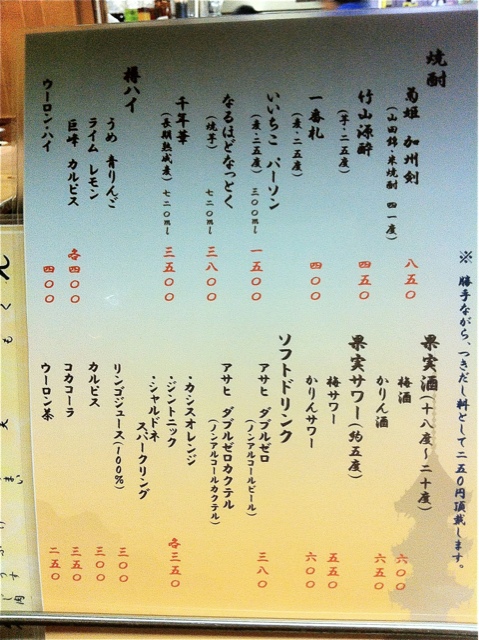 ※ 勝手ながら、つきだし料として二五〇円頂戴します。
焼酎
菊姫 加州剣
(山田錦・米焼酎 四一度) 八五〇
竹山源酔
(芋・二五度) 四五〇
一番札
(麦・二五度) 四〇〇
いいちこ パーソン
(麦・二五度) 三〇〇ml 一五〇〇
なるほどなっとく
(焼芋) 七二〇ml 三八〇〇
千年華
(長期熟成麦) 七二〇ml 三五〇〇
樽ハイ
うめ 青りんご
ライム レモン
巨峰 カルピス 各四〇〇
ウーロン・ハイ 四〇〇
果実酒(十八度〜二十度)
梅酒 六〇〇
かりん酒 六五〇
果実サワー(約五度)
梅サワー 五五〇
かりんサワー 六〇〇
ソフトドリンク
アサヒ ダブルゼロ
(ノンアルコールビール) 三八〇
アサヒ ダブルゼロカクテル
(ノンアルコールカクテル)
・カシスオレンジ
・ジントニック 各三五〇
・シャルドネ
スパークリング
リンゴジュース(100%) 三〇〇
カルピス 三〇〇
コカコーラ 三五〇
ウーロン茶 二五〇